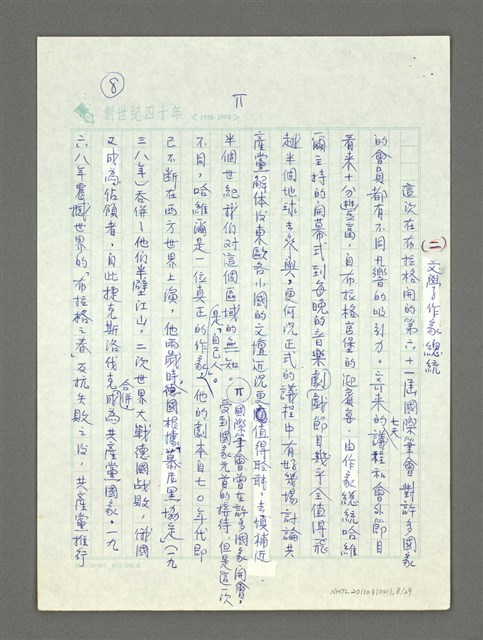 ⑧
π
創世紀四十年 <1954-1994>
(二) 文學、作家總統
這次在布拉格開的第六十一屆國際筆會對許多國家
的會員都有不同凡響的吸引力。七天來的議程和會外節目
看來十分豐富,自布拉格宮堡的迎賓宴,由作家總統哈維
爾主持的開幕式到每晚的音樂戲劇節目幾乎全值得飛
越半個地球去參與,更何況正式的議程中有好幾場討論共
產黨解体後東歐各小國的文壇近況更值得聆聽,去填補近
半個世紀我們对這個區域的無知。
π國際筆會曾在許多國家開會,
受到國家元首的接待,但是這一次
不同,哈維爾是一位真正的作家,
是「自己人」。
他的劇本自七〇年代即
已不斷在西方世界上演,他兩歲時,德國根據「慕尼黑協定」(一九
三八年)吞併了他們半壁江山,二次世界大戰德國战敗,俄國
又成為佔領者,自此捷克斯洛伐克
合併
成為共產黨國家。一九
六八年震撼世界的「布拉格之春」反抗失敗之後,共產黨推行
NMTL20110310011,8/29